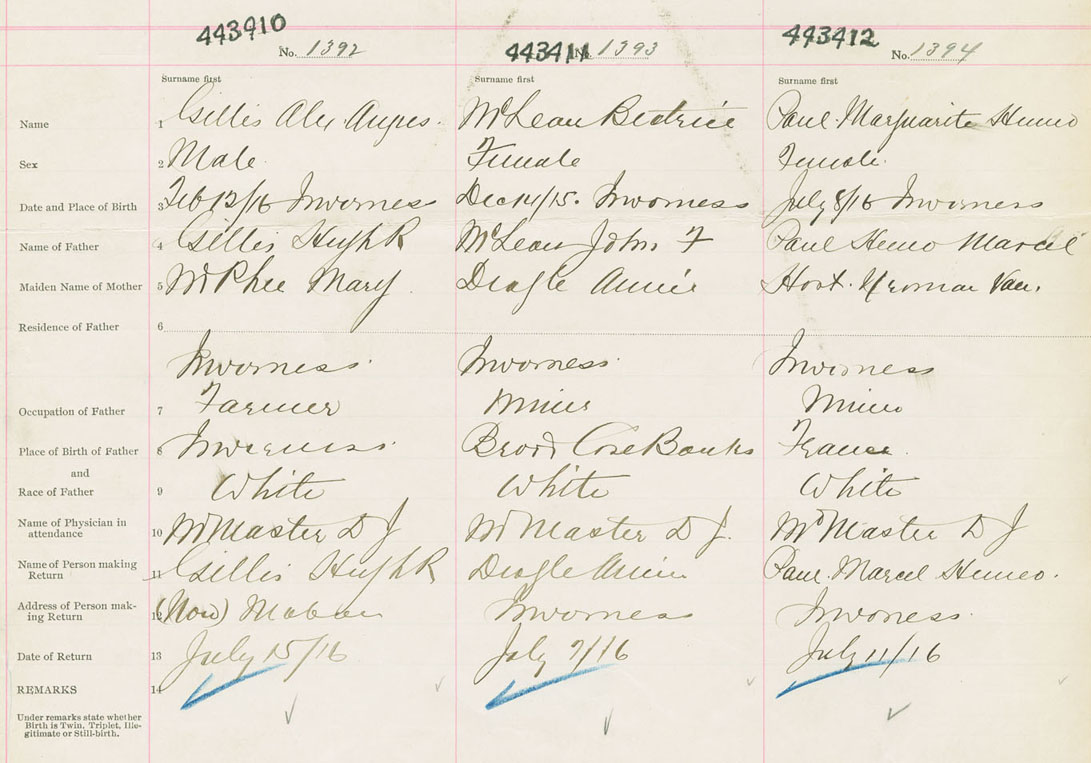 443910 443411 443412
No. 1392 No. 1393 No. 1394
Surname first Surname first Surname first
Name 1 Gillis Alex. Angus. McLean Beatrice Paul Marguarite
Sex 2 Male Female Female
Date and Place of Birth 3 Feb 12/16 Inverness Dec 14/15. Inverness July 8/16 Inverness
Name of Father 4 Gillis Hugh R McLean John F Paul Marcel
Maiden Name of Mother 5 McPhee Mary Deagle Annie
Residence of Father 6
Inverness Inverness Inverness
Occupation of Father 7 Farmer Miner Miner
Place of Birth of Father 8 Inverness Broad Cove Banks France
and
Race of Father 9 White White White
Name of Physician in 10 McMaster D J McMaster D J. McMaster D J
attendance
Name of Person making 11 Gillis Hugh R Deagle Annie Paul Marcel
Return
Address of Person mak- 12 (Now) Mabou Inverness Inverness
ing Return
Date of Return 13 July 15/16 July 7/16 July 11/16
REMARKS 14
Under remarks state whether
Birth is Twin, Triplet, Ille-
gitimate or Still-birth.